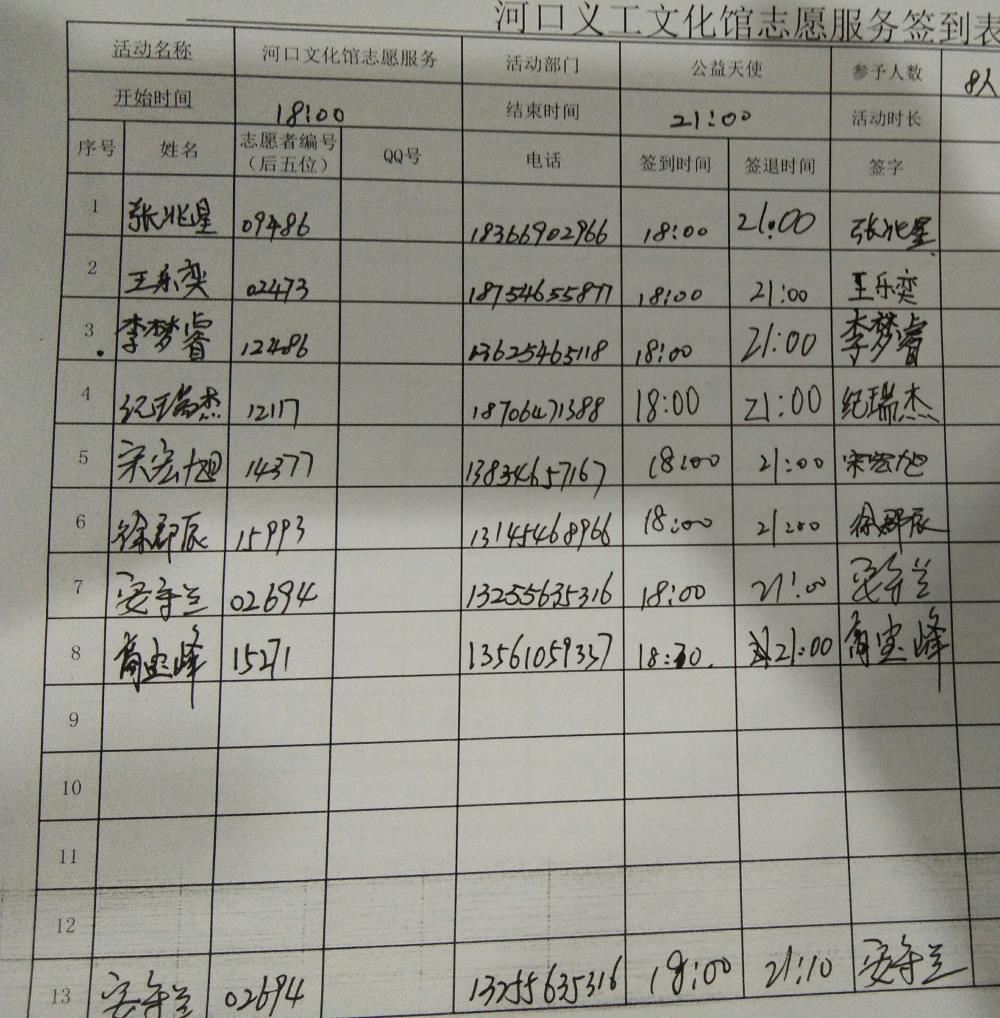 河口义工文化馆志愿服务签到表
活动名称 河口文化馆志愿服务 活动部门 公益天使 参予人数 8人
开始时间 18:00 结束时间 21:00 活动时长
序号 姓名 志愿者编号（后五位） QQ号 电话 签到时间 签退时间 签字
1 张兆星 09486 18366902966 18:00 21:00 张兆星
2 王乐奕 02473 18754655877 18:00 21:00 王乐奕
3 李梦睿 12486 13625465118 18:00 21:00 李梦睿
4 纪瑞杰 12117 18706471388 18:00 21:00 纪瑞杰
5 宋宏旭 14377 13834657167 18:00 21:00 宋宏旭
6 徐郡辰 15993 13145468966 18:00 21:00 徐郡辰
7 安守兰 02694 13255635316 18:00 21:00 安守兰
8 宝峰 15271 13561059337 18:30 21:00 宝峰
9
10
11
12
13 安守兰 02694 13255635316 18:00 21:10 安守兰